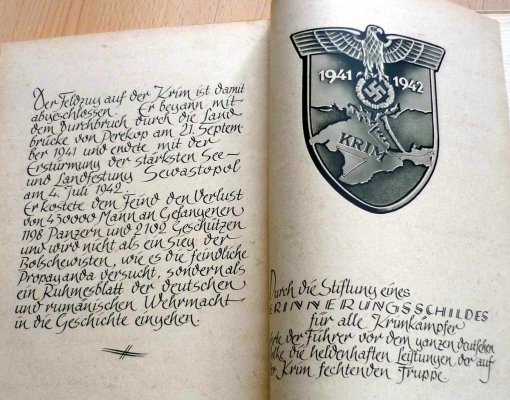 Der Feldzug auf der Krim ist damit
abgeschlossen. Er begann mit
dem Durchbruch durch die Land
brücke von Perekop am 21. Septem
ber 1941 und endete mit der
Erstürmung der stärksten See-
und Landfestung Sewastopol
am 4. Juli 1942.
Er kostete dem Feind den Verlust
von 430000 Mann an Gefangenen
1198 Panzern und 2102 Geschützen
und wird nicht als ein Sieg der
Bolschewisten, wie es die feindliche
Propaganda versucht, sondern als
ein Ruhmesblatt der deutschen
und rumänischen Wehrmacht
in die Geschichte eingehen.
1941 1942
KRIM
Durch die Stiftung eines
ERINNERUNGSSCHILDES
für alle Krimkämpfer
der Führer vor dem ganzen deutschen
die heldenhaften Leistungen der auf
Krim fechtenden Truppe.